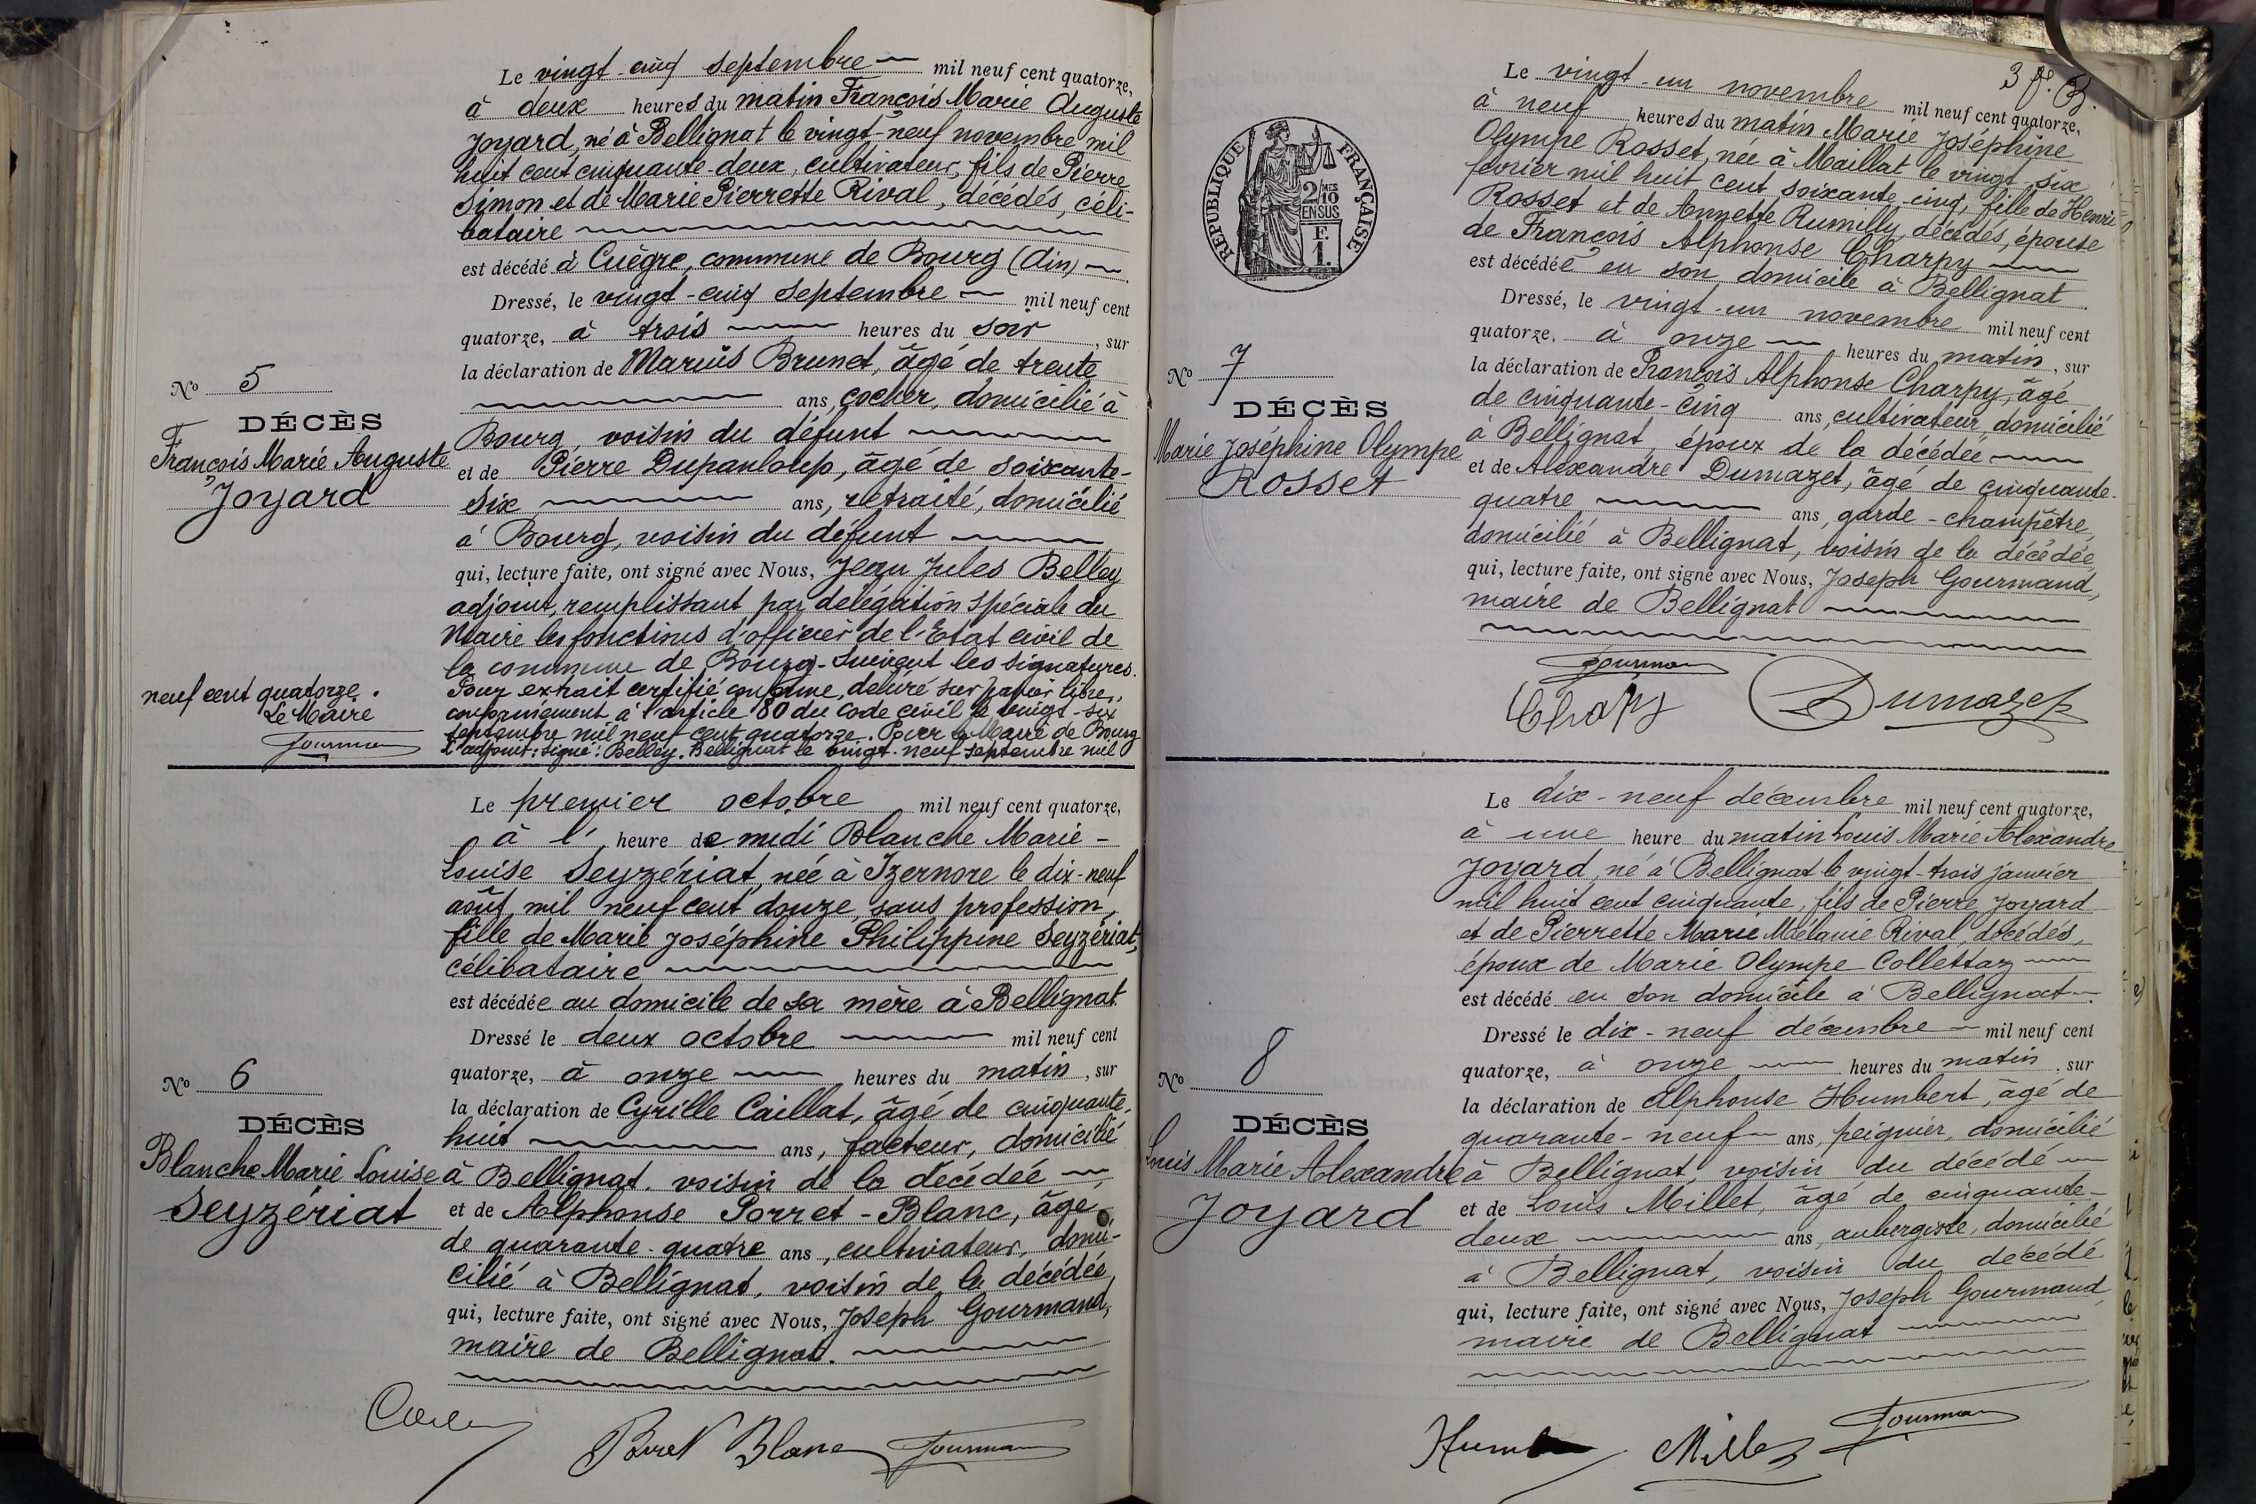 Le vingt-cinq septembre mil neuf cent quatorze,
à deux heures du matin François Marie Auguste
Joyard, né à Bellignat le vingt-neuf novembre mil
huit cent cinquante-deux, cultivateur, fils de Pierre
Simon et de Marie Pierrette Rival, décédés, céli-
bataire
est décédé à Cuègre, commune de Bourg (Ain)
Dressé, le vingt-cinq septembre mil neuf cent
quatorze, à trois heures du soir, sur
la déclaration de Marius Brunet, âgé de trente
ans, cocher, domicilié à
Bourg, voisin du défunt
et de Pierre Dupanloup, âgé de soixante-
six ans, retraité, domicilié
à Bourg, voisin du défunt
qui, lecture faite, ont signé avec Nous, Jean Jules Belley
adjoint, remplissant par délégation spéciale du
Maire les fonctions d'officier de l'Etat civil de
la commune de Bourg - Suivent les signatures.
Pour extrait certifié conforme, délivré sur papier libre,
conformément à l'article 80 du code civil le vingt-six
septembre mil neuf cent quatorze. Pour le Maire de Bourg
L'adjoint: signé: Belley. Bellignat le vingt-neuf septembre mil
neuf cent quatorze.
Le Maire
Gourman
No 5
DÉCÈS
François Marie Auguste
Joyard
Le premier octobre mil neuf cent quatorze,
à l' heure de midi Blanche Marie-
Louise Seyzériat, née à Izernore le dix-neuf
août mil neuf cent douze, sans profession,
fille de Marie Joséphine Philippine Seyzériat,
célibataire
est décédée au domicile de sa mère à Bellignat
Dressé le deux octobre mil neuf cent
quatorze, à onze heures du matin, sur
la déclaration de Cyrille Caillat, âgé de cinquante-
huit ans, facteur, domicilié
à Bellignat, voisin de la décédée
et de Alphonse Porret-Blanc, âgé
de quarante-quatre ans, cultivateur, domi-
cilié à Bellignat, voisin de la décédée,
qui, lecture faite, ont signé avec Nous, Joseph Gourmand,
maire de Bellignat.
No 6
DÉCÈS
Blanche Marie Louise
Seyzériat
Poret Blanc Gourman
3 f.
RÉPUBLIQUE FRANÇAISE
2/10 MES
EN SUS
F.
1.
Le vingt-un novembre mil neuf cent quatorze,
à neuf heures du matin Marie Joséphine
Olympe Rosset, née à Maillat le vingt-six
février mil huit cent soixante-cinq, fille de Henri
Rosset et de Annette Rumilly, décédés, épouse
de François Alphonse Charpy
est décédée en son domicile à Bellignat
Dressé, le vingt-un novembre mil neuf cent
quatorze, à onze heures du matin, sur
la déclaration de François Alphonse Charpy, âgé
de cinquante-cinq ans, cultivateur, domicilié
à Bellignat, époux de la décédée
et de Alexandre Dumazet, âgé de cinquante-
quatre ans, garde-champêtre,
domicilié à Bellignat, voisin de la décédée,
qui, lecture faite, ont signé avec Nous, Joseph Gourmand,
maire de Bellignat
No 7
DÉCÈS
Marie Joséphine Olympe
Rosset
Gourman
Charpy Dumazet
Le dix-neuf décembre mil neuf cent quatorze,
à une heure du matin Louis Marie Alexandre
Joyard, né à Bellignat le vingt-trois janvier
mil huit cent cinquante, fils de Pierre Joyard
et de Pierrette Marie Mélanie Rival, décédés,
époux de Marie Olympe Collettaz
est décédé en son domicile à Bellignat
Dressé le dix-neuf décembre mil neuf cent
quatorze, à onze heures du matin, sur
la déclaration de Alphonse Humbert, âgé de
quarante-neuf ans, peignier, domicilié
à Bellignat, voisin du décédé
et de Louis Millet, âgé de cinquante-
deux ans, aubergiste, domicilié
à Bellignat, voisin du décédé
qui, lecture faite, ont signé avec Nous, Joseph Gourmand,
maire de Bellignat
No 8
DÉCÈS
Louis Marie Alexandre
Joyard
Millet Gourman